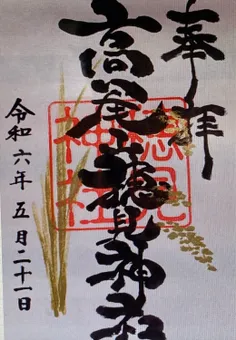 奉拝
高尾山穂見神社
穂見
神社
令和六年五月二十一日